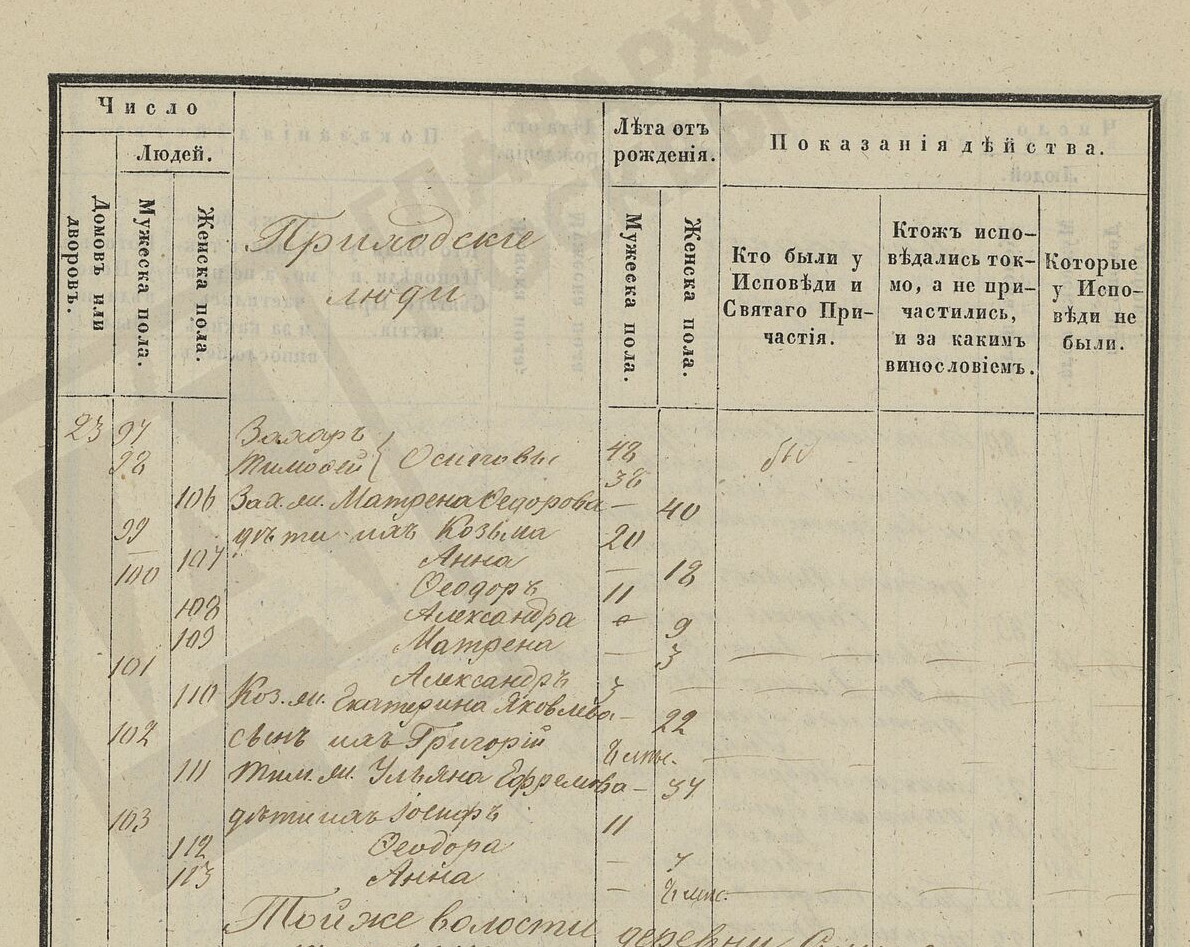 Число
Людей.
Домовъ или дворовъ.
Мужеска пола.
Женска пола.
Приходскіе
люди
Лѣта отъ
рожденія.
Мужеска пола.
Женска пола.
Показанія дѣйства.
Кто были у
Исповѣди и
Святаго При-
частія.
Ктожъ испо-
вѣдались ток-
мо, а не при-
частились,
и за какимъ
винословіемъ.
Которые
у Испо-
вѣди не
были.
23 97 Захаръ 48
98 Тимоѳей } Осиповы 38 бы
106 Зах. ж. Матрена Ѳедорова — 40
99 дѣти ихъ Козьма 20
107 Анна — 18
100 Ѳеодоръ 11
108 Александра — 9
109 Матрена — 3
101 Александръ 3
110 Коз. ж. Екатерина Яковлева — 22
102 сынъ ихъ Григорій
111 Тим. ж. Ульяна Ефремова — 37
103 дѣти ихъ Іосифъ 11
112 Ѳеодора — 7
113 Анна —
Той же волости деревни